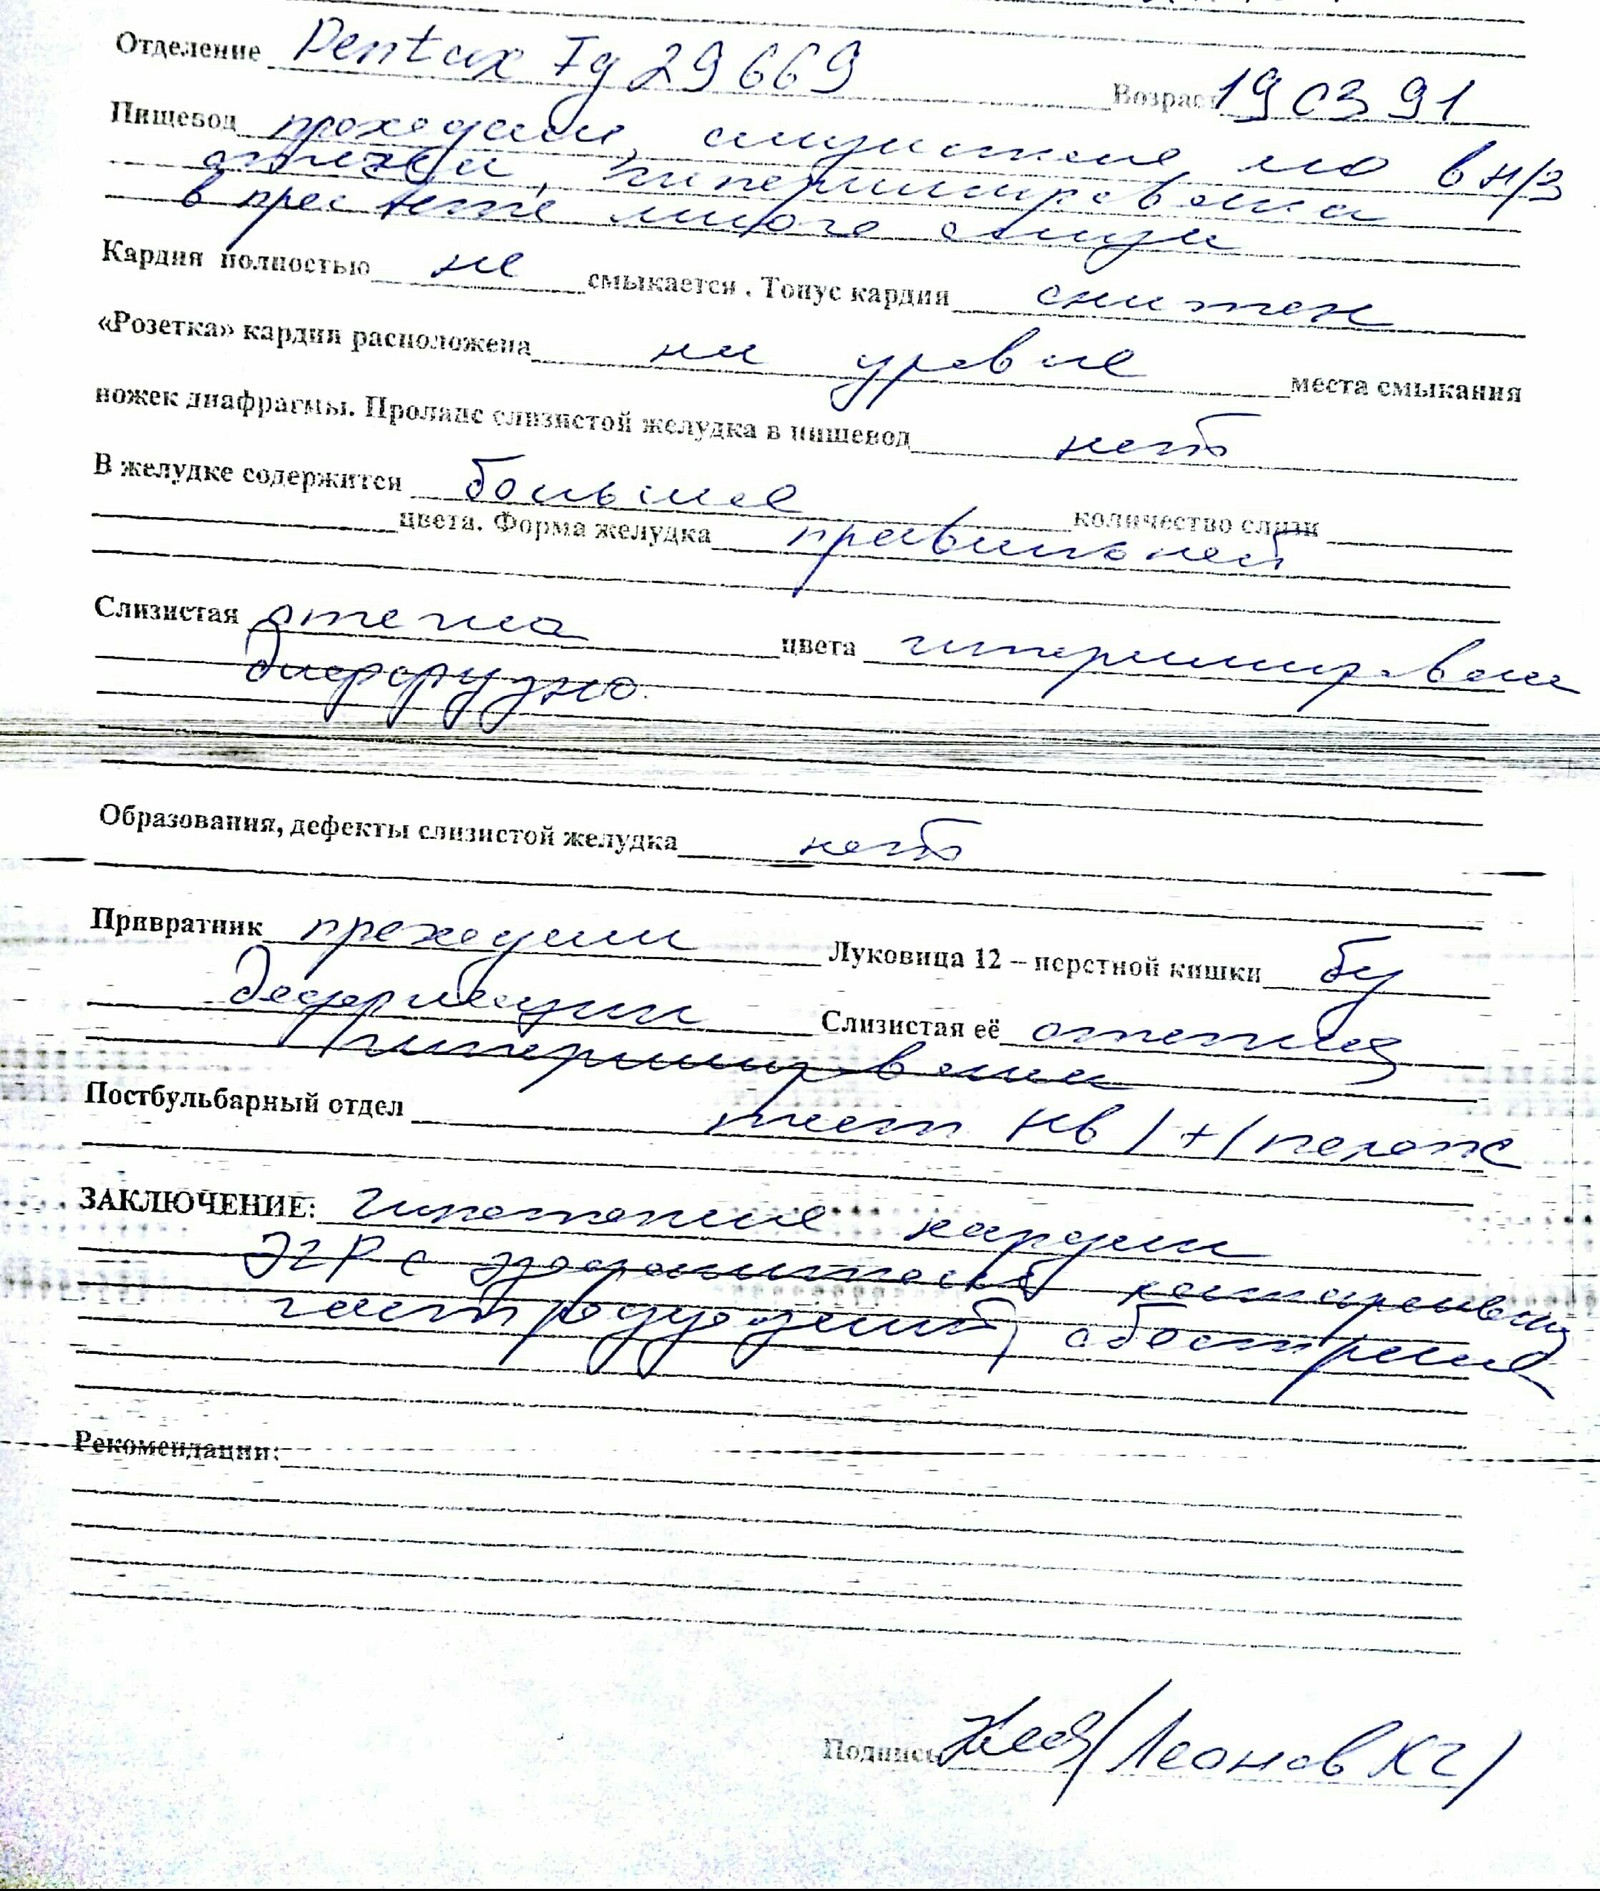 Отделение Pentax Fg 29 669 Возраст 19 03 91
Пищевод проходим, слизистая его в н/3
отечна, гиперемирована
в просвете много слизи
Кардия полностью не смыкается. Тонус кардии снижен
«Розетка» кардии расположена на уровне места смыкания
ножек диафрагмы. Пролапс слизистой желудка в пищевод нет
В желудке содержится большое количество слизи
цвета. Форма желудка правильной
Слизистая отечна цвета гиперемирована
диффузно.
Образования, дефекты слизистой желудка нет
Привратник проходим Луковица 12 – перстной кишки б/
деформации Слизистая её отечна,
гиперемирована
Постбульбарный отдел тест Нв /+/ полож
ЗАКЛЮЧЕНИЕ: гипотония кардии
ЭГР с эзофагитом катаральный
гастродуоденит, обострение
Рекомендации:
Подпись (Леонов КГ)